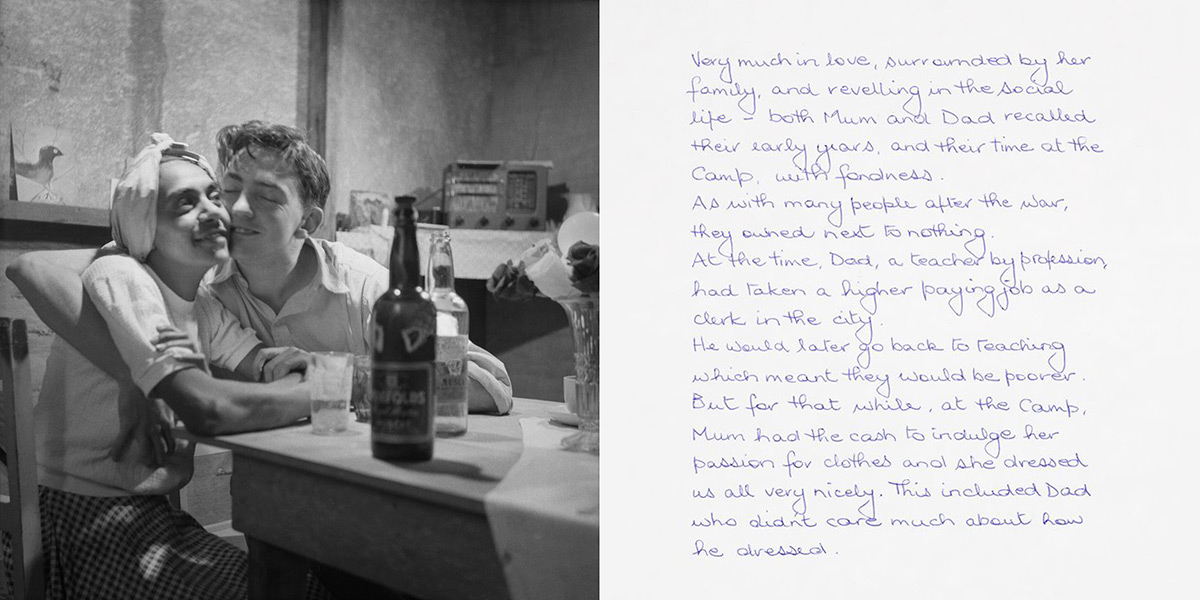 PENFOLDS
Very much in love, surrounded by her
family, and revelling in the social
life – both Mum and Dad recalled
their early years, and their time at the
Camp, with fondness.
As with many people after the war,
they owned next to nothing.
At the time, Dad, a teacher by profession,
had taken a higher paying job as a
clerk in the city.
He would later go back to teaching
which meant they would be poorer.
But for that while, at the Camp,
Mum had the cash to indulge her
passion for clothes and she dressed
us all very nicely. This included Dad
who didn't care much about how
he dressed.